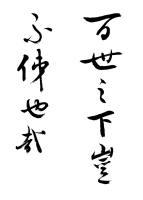 百世之下豈
不偉也哉